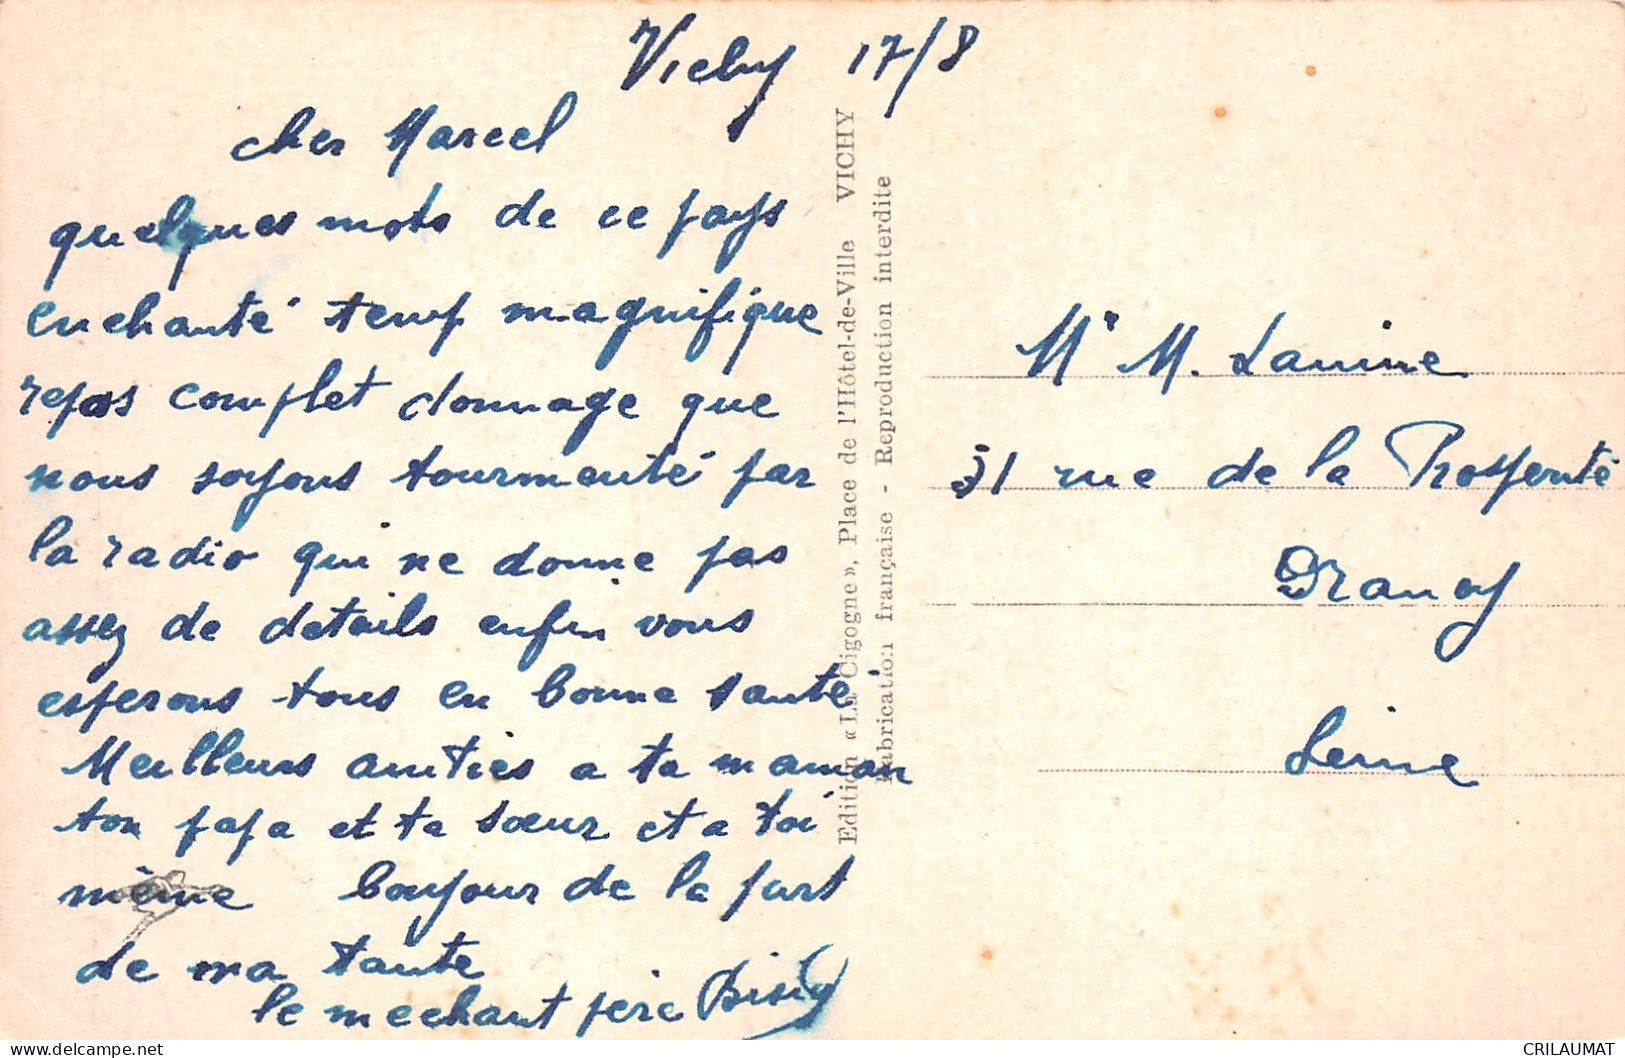 Vichy 17/8
cher Marcel
quelques mots de ce pays
enchanté temps magnifique
repos complet dommage que
nous soyons tourmenté par
la radio qui ne donne pas
assez de details enfin vous
esperons tous en bonne santé
Meilleurs amitiés a ta maman
ton papa et ta sœur et a toi
même bonjour de la part
de ma tante
le mechant père
Edition « La Cigogne », Place de l'Hôtel-de-Ville VICHY
Fabrication française - Reproduction interdite
Mr M. Lanine
31 rue de la Prosperité
Drancy
Seine
CRILAUMAT
www.delcampe.net